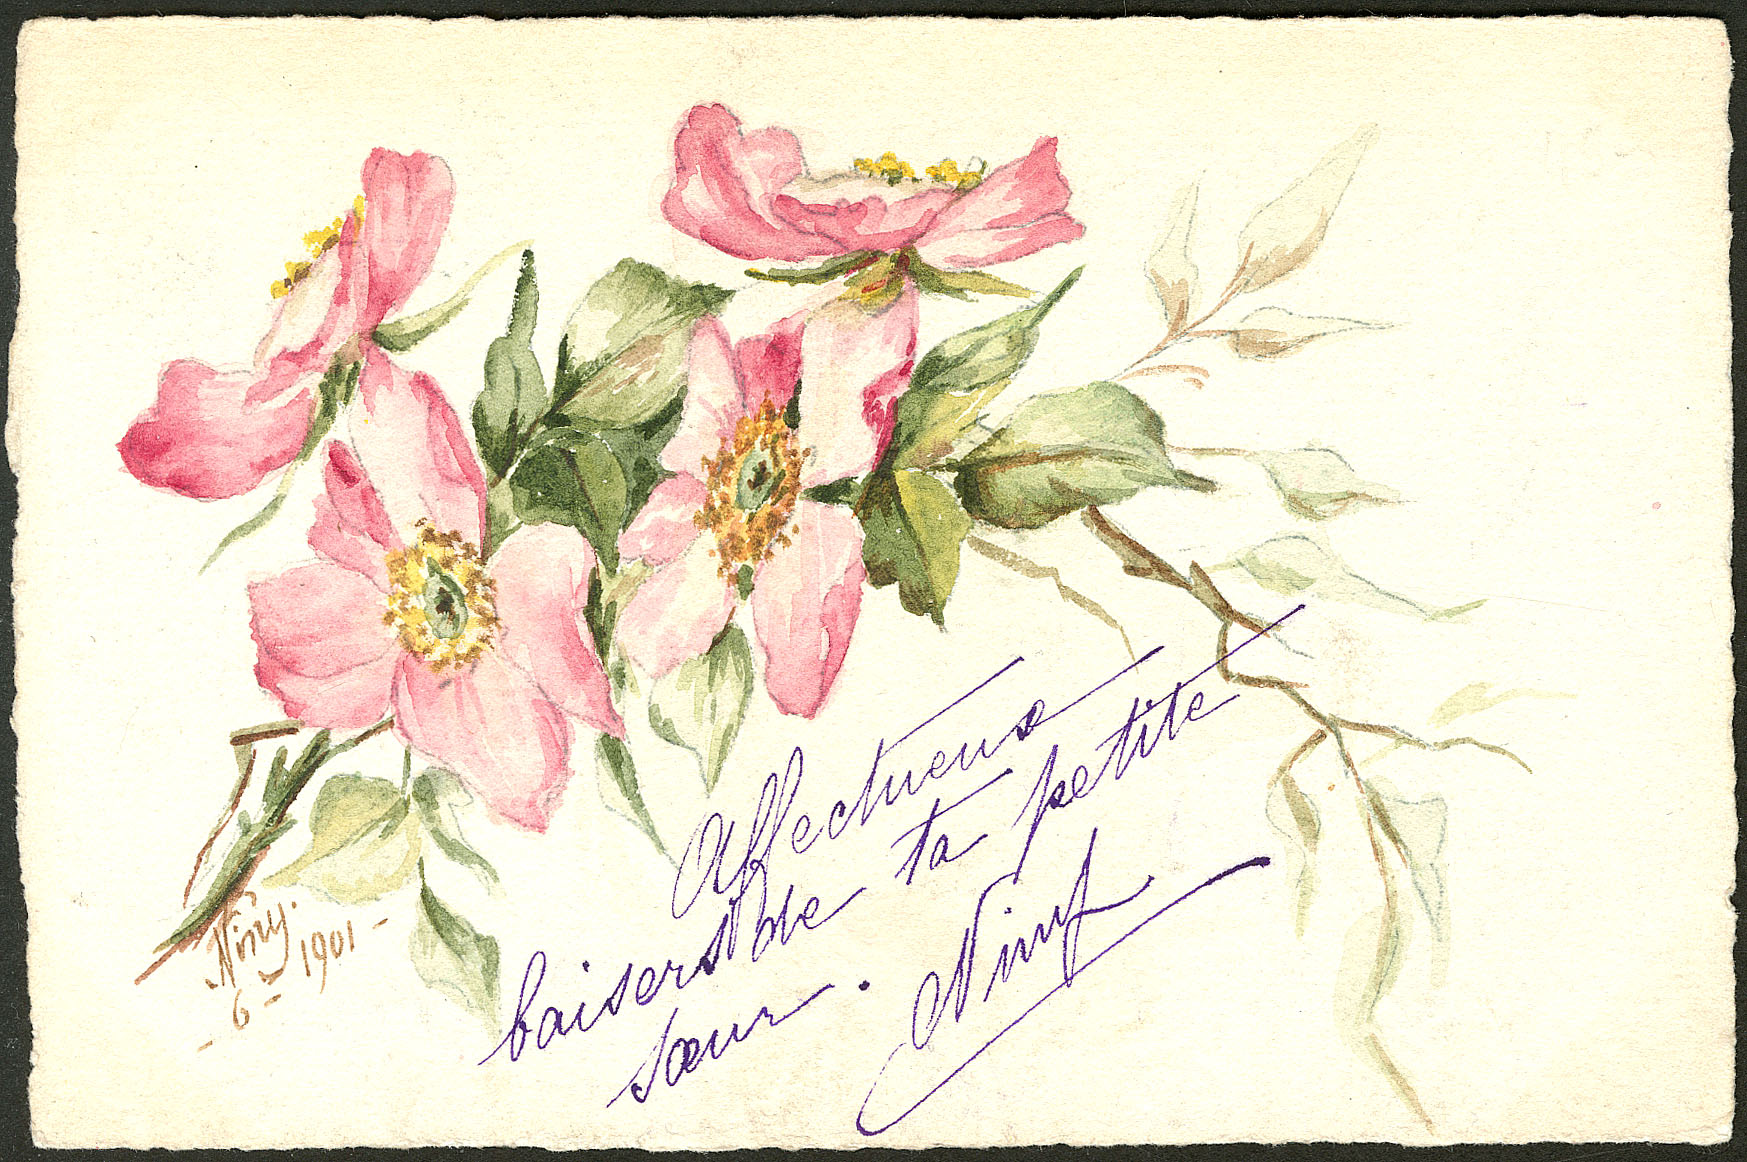 Affectueux
baisers de ta petite
sœur. Niny
Niny.
1901 -
- 6 -